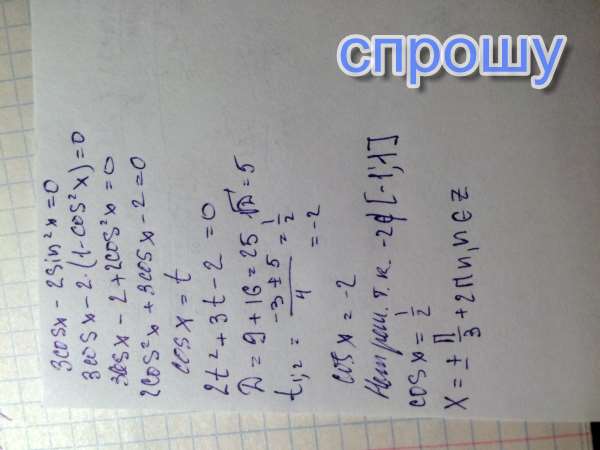 спрошу
3cosx - 2sin²x = 0
3cosx - 2·(1-cos²x) = 0
3cosx - 2 + 2cos²x = 0
2cos²x + 3cosx - 2 = 0
cosx = t
2t² + 3t - 2 = 0
D = 9 + 16 = 25 √D = 5
t₁;₂ = (-3 ± 5)/4 = 1/2
= -2
cosx = -2
Нет реш. т.к. -2∉[-1;1]
cosx = 1/2
X = ± П/3 + 2Пn, n ∈ Z